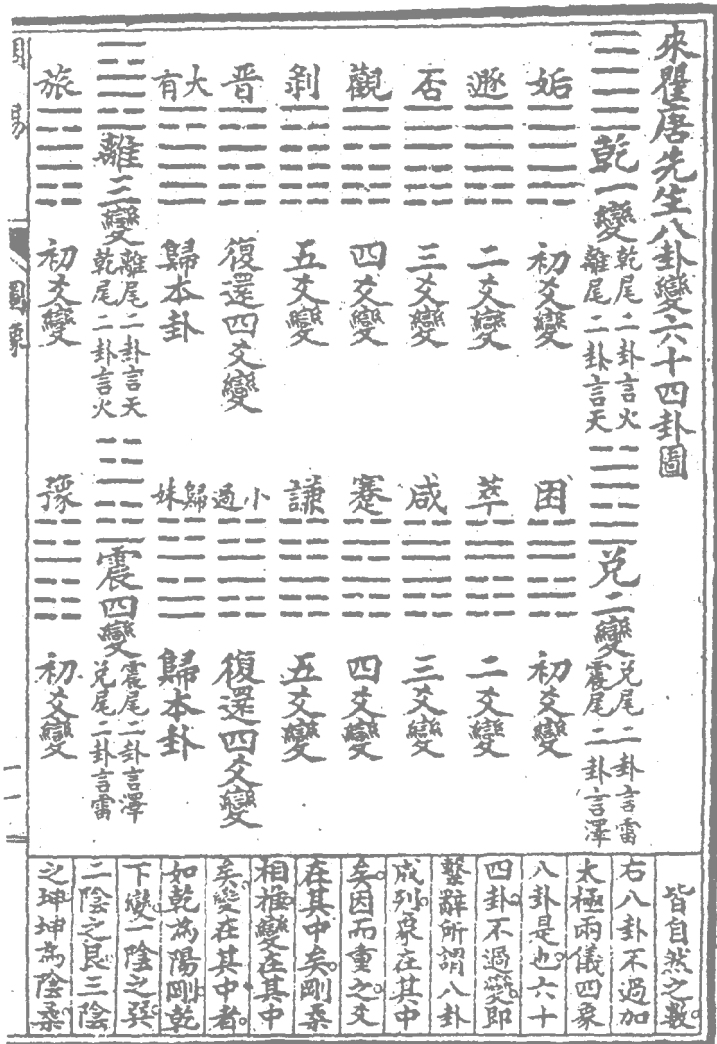 來瞿唐先生八卦變六十四卦圖
乾一變
乾尾二卦言火
離尾二卦言天
姤
初爻變
遯
二爻變
否
三爻變
觀
四爻變
剝
五爻變
晉
復還四爻變
大有
歸本卦
離三變
離尾二卦言天
乾尾二卦言火
旅
初爻變
兌二變
兌尾二卦言雷
震尾二卦言澤
困
初爻變
萃
二爻變
咸
三爻變
蹇
四爻變
謙
五爻變
小過
復還四爻變
歸妹
歸本卦
震四變
震尾二卦言澤
兌尾二卦言雷
豫
初爻變
皆自然之數
右八卦不過加
太極兩儀四象
八卦是也六十
四卦不過變即
繫辭所謂八卦
成列象在其中
矣因而重之爻
在其中矣剛柔
相推變在其中
矣變在其中者
如乾為陽剛乾
下變一陰之巽
二陰之艮三陰
之坤坤為陰柔
圖像